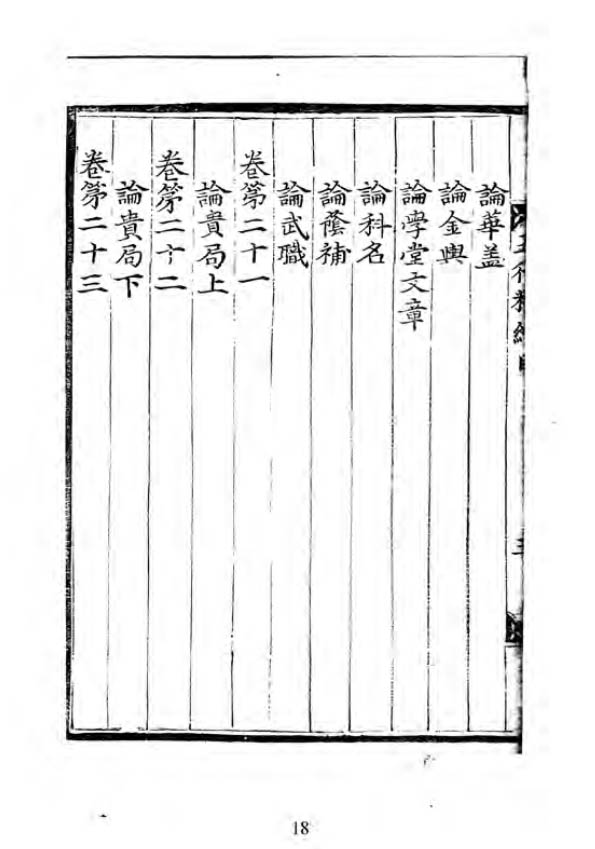 論華盖
論金輿
論學堂文章
論科名
論蔭補
論武職
卷第二十一
論貴局上
卷第二十二
論貴局下
卷第二十三
18